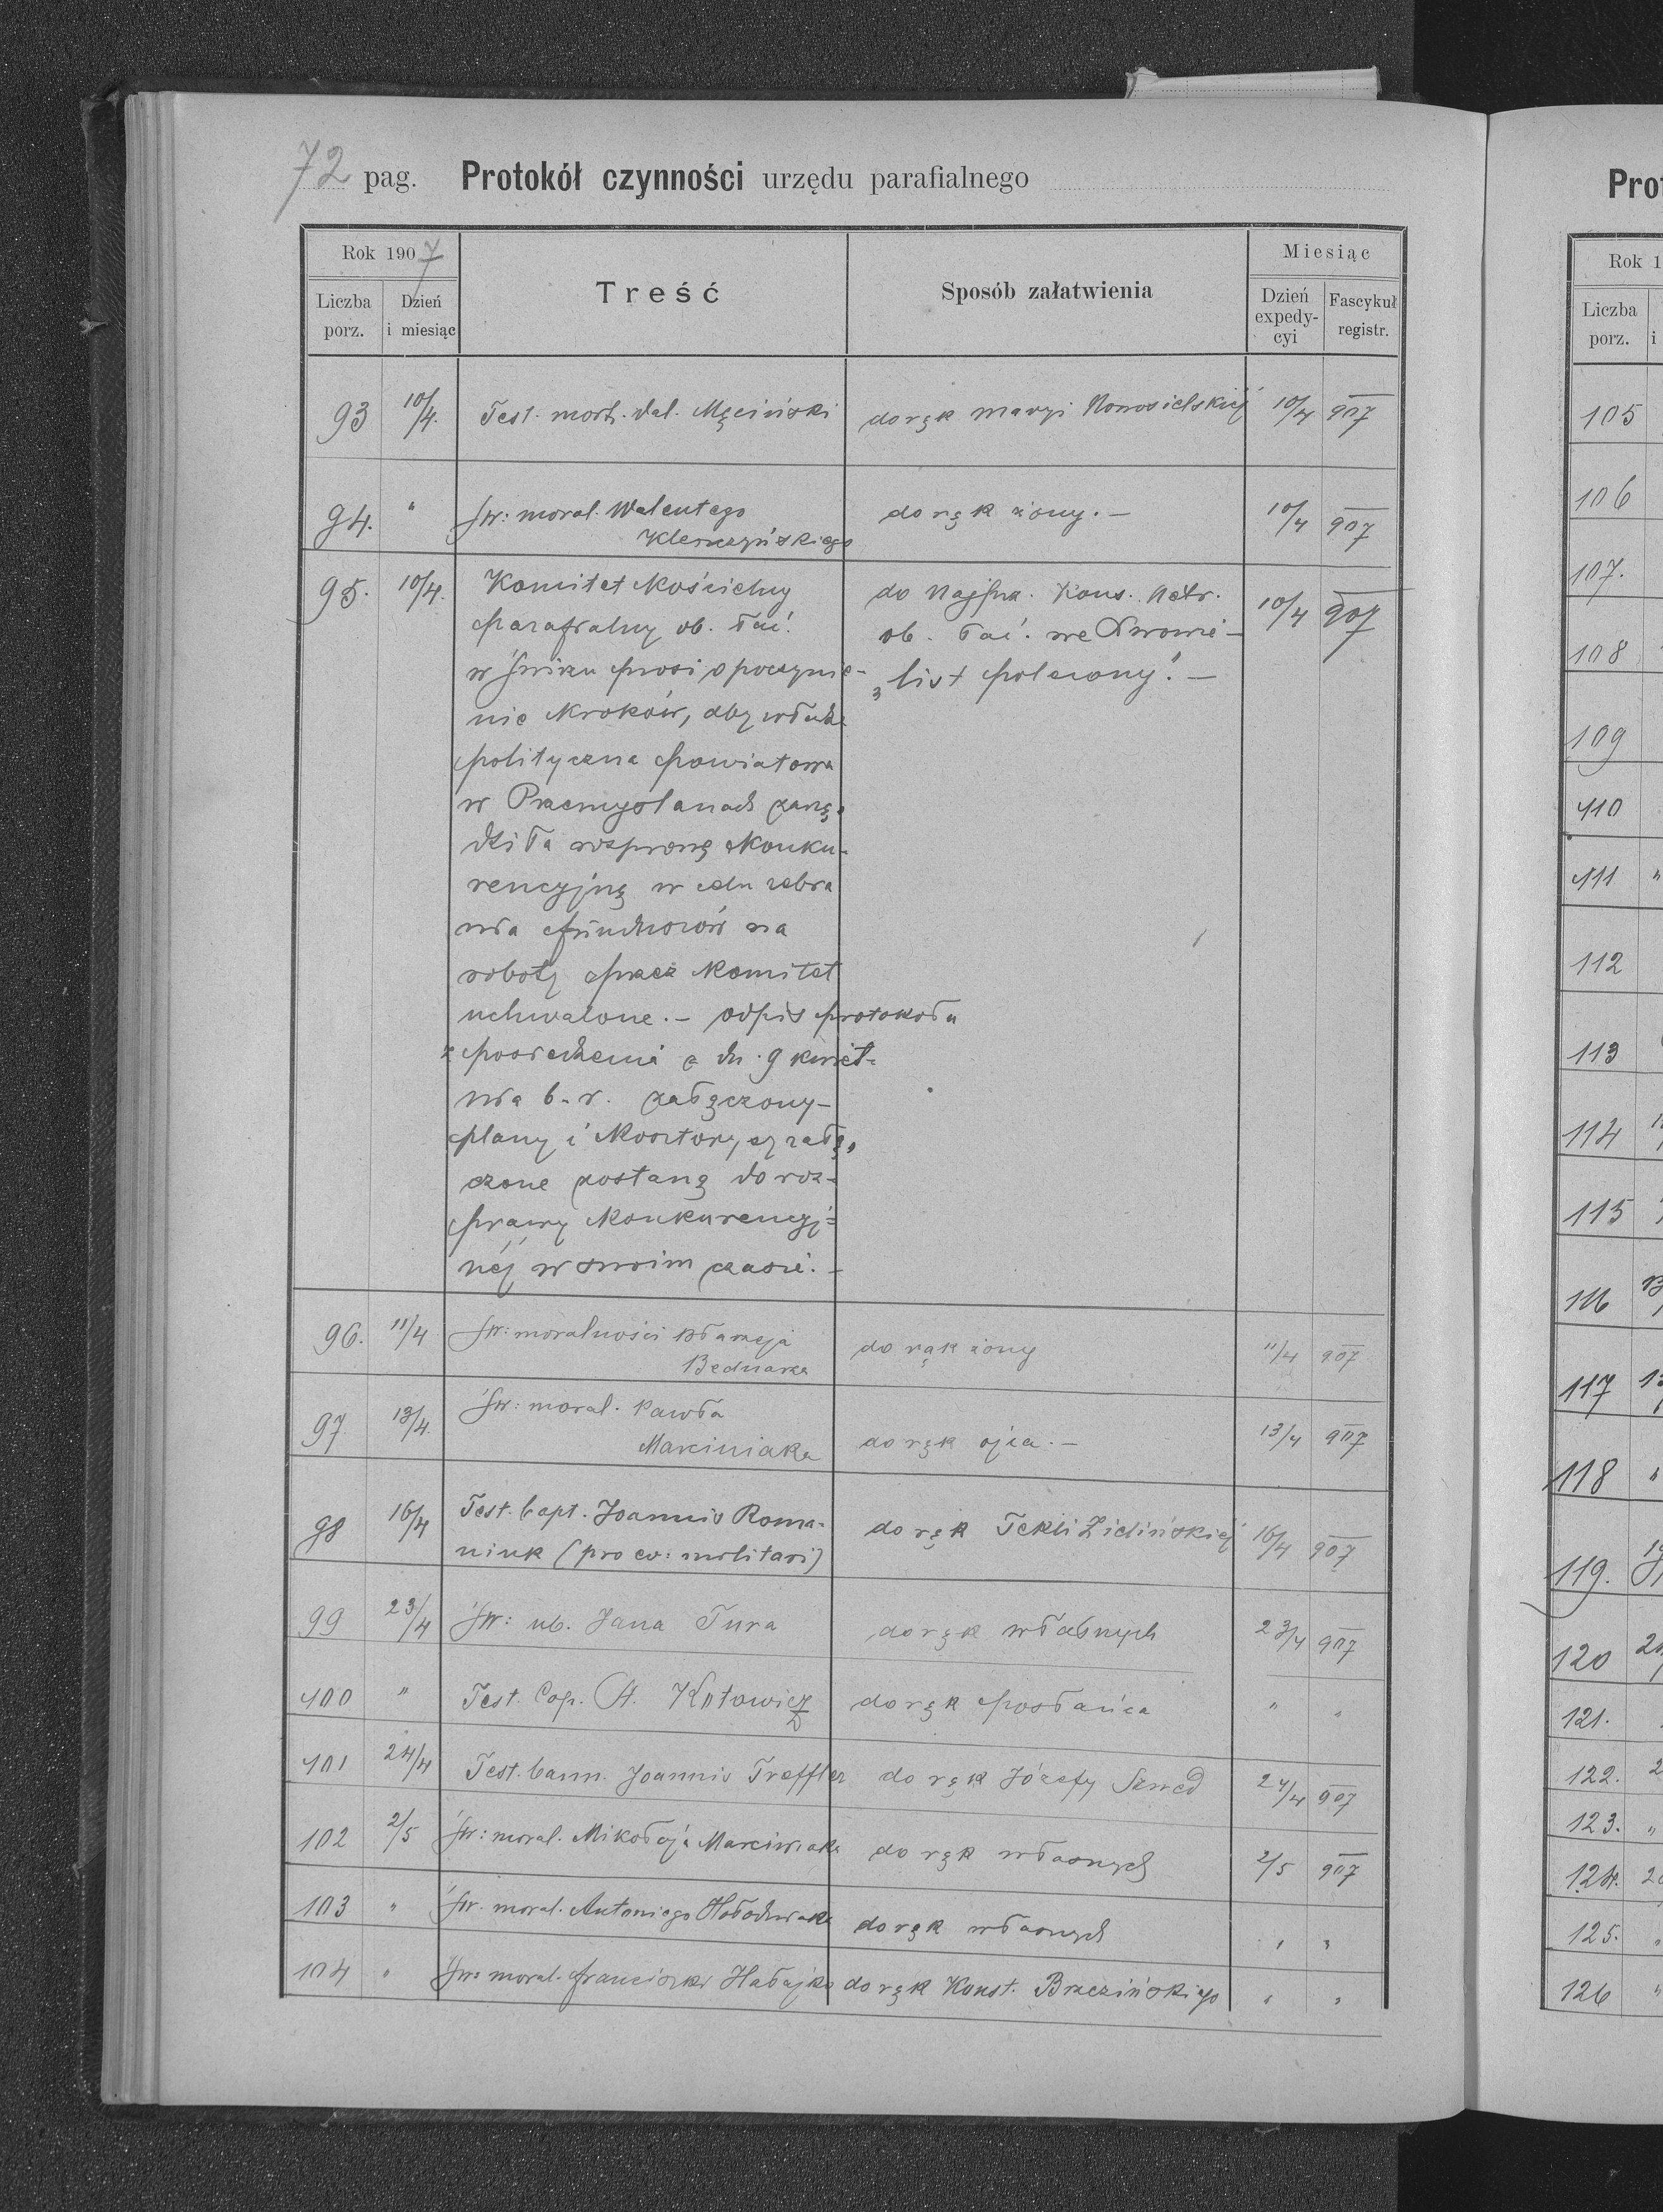 72 pag. Protokół czynności urzędu parafialnego
Rok 1907
Liczba porz.
Dzień i miesiąc
Treść
Sposób załatwienia
Miesiąc
Dzień expedy-cyi
Fascykuł registr.
93 10/4. Test. mort. Val. Męciński do rąk Maryi Nowosielskiéj 10/4 907
94. " Św: moral. Walentego do rąk żony. — 10/4 907
Kleszczyńskiego
95. 10/4. Komitet Kościelny do Najprz. Kons. Metr. 10/4 907
parafialny ob. łać. ob. łać. we Lwowie —
w Świrzu prosi o poczynie- „list polecony". —
nie kroków, aby władza
polityczna powiatowa
w Przemyślanach zarzą-
dziła rozprawę konku-
rencyjną w celu zebra
nia funduszów na
roboty przez Komitet
uchwalone. — odpis protokołu
z posiedzenia z dn. 9 kwiet-
nia b. r. załączony —
plany i kosztorysy załą-
czone zostaną do roz-
prawy konkurencyj-
néj w swoim czasie. —
96. 11/4 Św: moralności Błażeja do rąk żony 11/4 907
Bednarza
97 13/4. Św: moral. Pawła
Marciniaka do rąk ojca. — 13/4 907
98 16/4 Test. bapt. Joannis Roma- do rąk Tekli Zielińskiéj 16/4 907
niuk (pro ev: militari)
99 23/4 Św: ub. Jana Tura do rąk własnych 23/4 907
100 " Test. Cop. A. Kotowicz do rąk posłańca " "
101 24/4 Test. bann. Joannis Treffler do rąk Józefy Szwed 24/4 907
102 2/5 Św: moral. Mikołaja Marciniaka do rąk własnych 2/5 907
103 " Św. moral. Antoniego Hołodniaka do rąk własnych " "
104 " Św: moral. Franciszka Hałajko do rąk Konst. Brzezińskiego " "
Pro
Rok 1
Liczba porz.
i
105
106
107.
108
109
110
111 "
112
113
114
115
116
117
118 "
119.
120
121.
122.
123. "
124.
125.
126 "